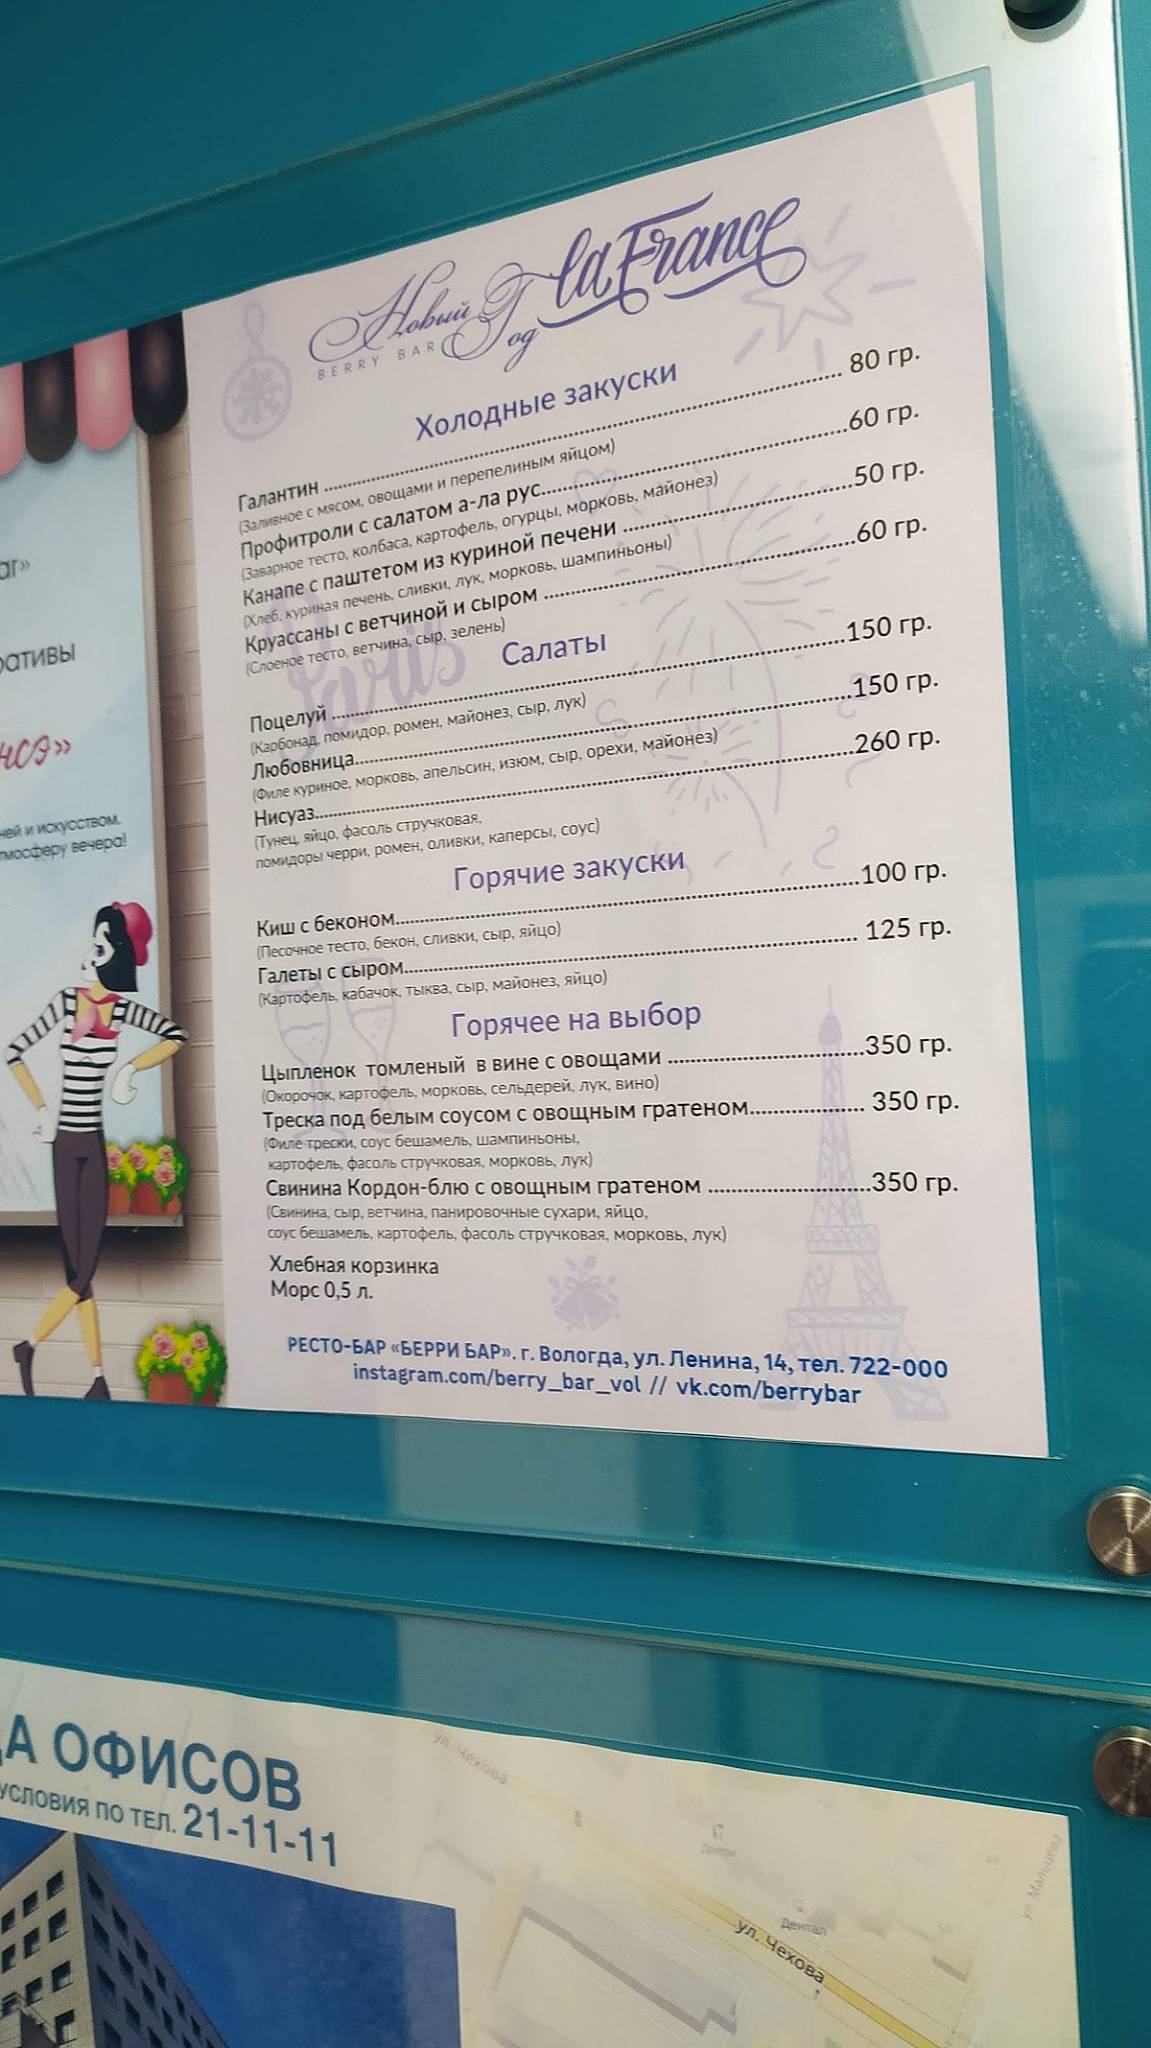 Новый Год la France
BERRY BAR
Холодные закуски
Галантин ........ 80 гр.
(Заливное с мясом, овощами и перепелиным яйцом)
Профитроли с салатом а-ла рус........60 гр.
(Заварное тесто, колбаса, картофель, огурцы, морковь, майонез)
Канапе с паштетом из куриной печени ........50 гр.
(Хлеб, куриная печень, сливки, лук, морковь, шампиньоны)
Круассаны с ветчиной и сыром ........60 гр.
(Слоеное тесто, ветчина, сыр, зелень)
Paris
Салаты
Поцелуй ........150 гр.
(Карбонад, помидор, ромен, майонез, сыр, лук)
Любовница........150 гр.
(Филе куриное, морковь, апельсин, изюм, сыр, орехи, майонез)
Нисуаз........260 гр.
(Тунец, яйцо, фасоль стручковая,
помидоры черри, ромен, оливки, каперсы, соус)
Горячие закуски
Киш с беконом........100 гр.
(Песочное тесто, бекон, сливки, сыр, яйцо)
Галеты с сыром........ 125 гр.
(Картофель, кабачок, тыква, сыр, майонез, яйцо)
Горячее на выбор
Цыпленок томленый в вине с овощами ........350 гр.
(Окорочок, картофель, морковь, сельдерей, лук, вино)
Треска под белым соусом с овощным гратеном........ 350 гр.
(Филе трески, соус бешамель, шампиньоны,
картофель, фасоль стручковая, морковь, лук)
Свинина Кордон-блю с овощным гратеном ........350 гр.
(Свинина, сыр, ветчина, панировочные сухари, яйцо,
соус бешамель, картофель, фасоль стручковая, морковь, лук)
Хлебная корзинка
Морс 0,5 л.
РЕСТО-БАР «БЕРРИ БАР». г. Вологда, ул. Ленина, 14, тел. 722-000
instagram.com/berry_bar_vol // vk.com/berrybar
ar»
ративы
нсэ»
ней и искусством.
тмосферу вечера!
ДА ОФИСОВ
УСЛОВИЯ ПО ТЕЛ. 21-11-11
ул. Чехова
Двери
Дентал
ул. Чехова
ул. Мальцева